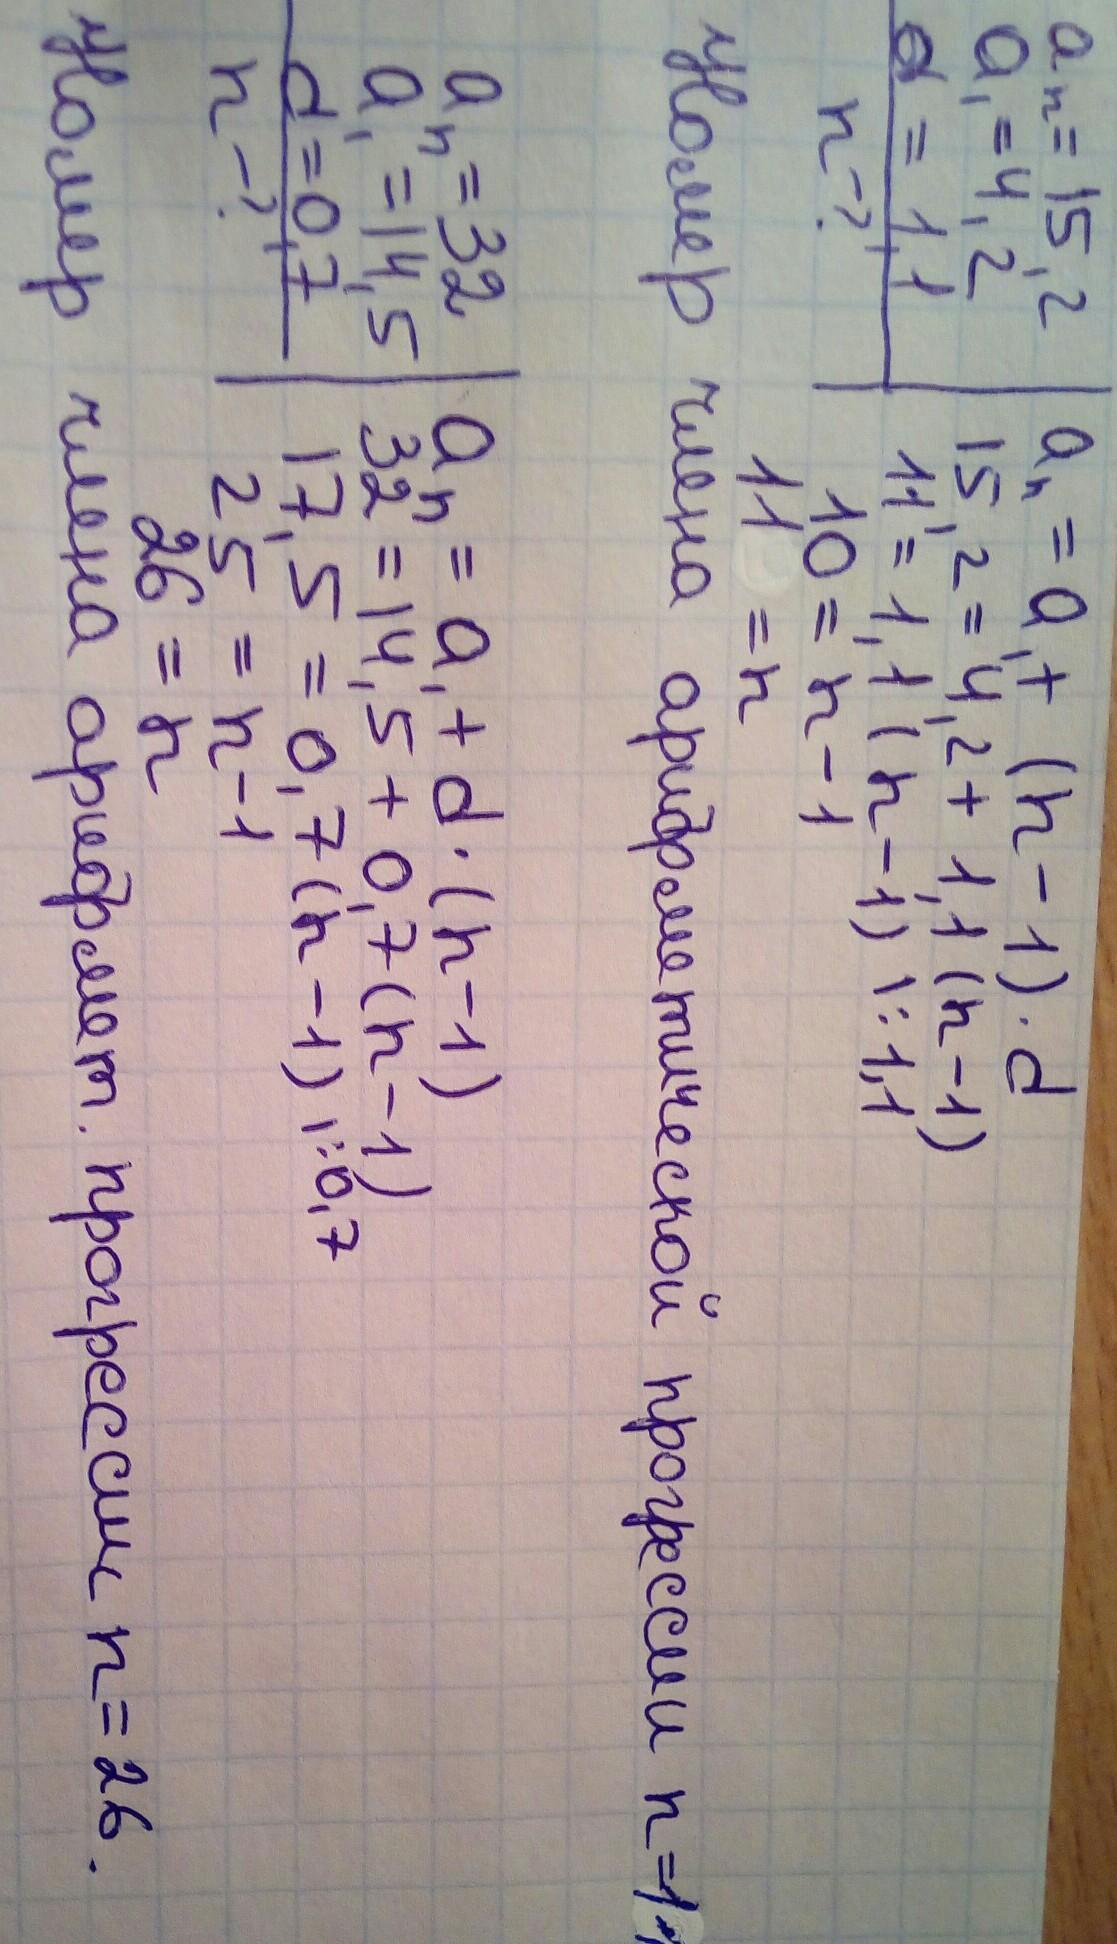 aₙ = 15,2
a₁ = 4,2
d = 1,1
n - ?
aₙ = a₁ + (n - 1) · d
15,2 = 4,2 + 1,1 (n - 1)
11 = 1,1 (n - 1) | : 1,1
10 = n - 1
11 = n
Номер члена арифметической прогрессии n = 11
aₙ = 32
a₁ = 14,5
d = 0,7
n - ?
aₙ = a₁ + d · (n - 1)
32 = 14,5 + 0,7 (n - 1)
17,5 = 0,7 (n - 1) | : 0,7
25 = n - 1
26 = n
Номер члена арифмет. прогрессии n = 26.